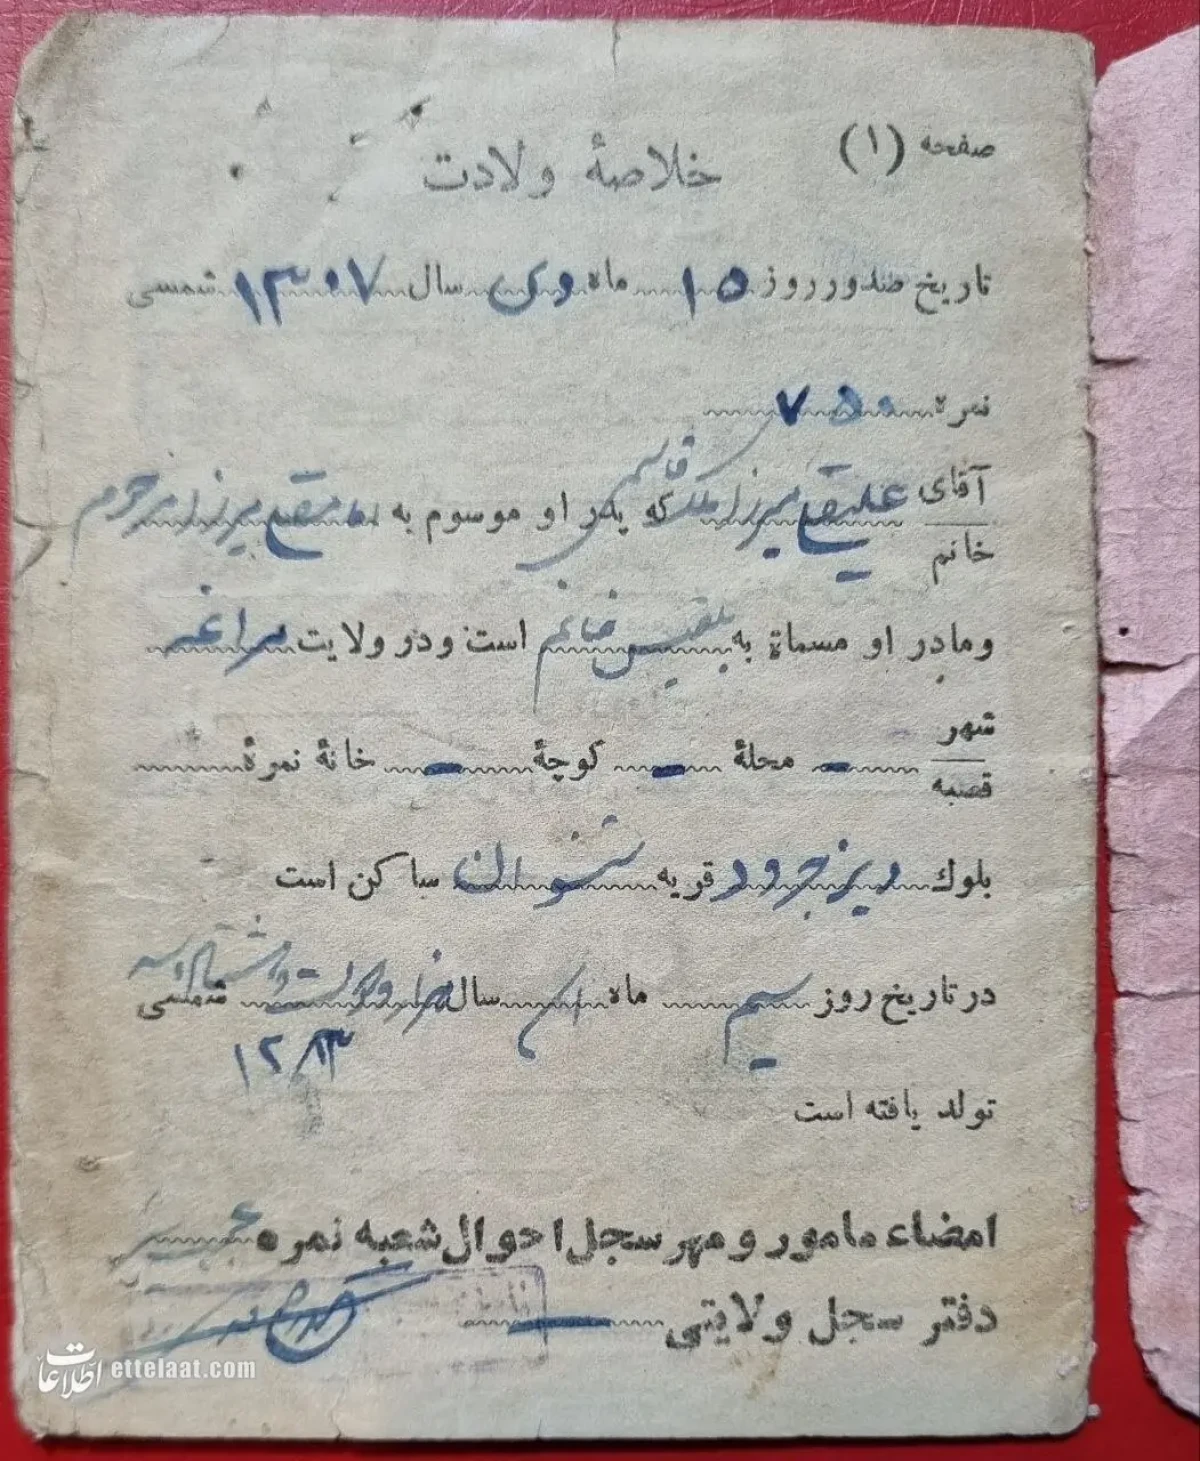 صفحه (۱)
خلاصهٔ ولادت
تاریخ صدور روز ۱۵ ماه دی سال ۱۳۰۷ شمسی
نمره ۷۵۰
آقای علینقی میرزا ملک قاسمی که پدر او موسوم به امامقلی میرزا مرحوم
خانم
و مادر او مسماة به بلقیس خانم است و در ولایت مراغه
شهر
قصبه - محلهٔ - کوچهٔ - خانهٔ نمرهٔ
بلوك دیزجرود قریه شنوان ساکن است
در تاریخ روز سیم ماه سال هزار و دویست و هشتاد و سه شمسی
۱۲۸۳
تولد یافته است
امضاء مامور و مهر سجل احوال شعبه نمره
دفتر سجل ولایتی
اطلاعات ettelaat.com